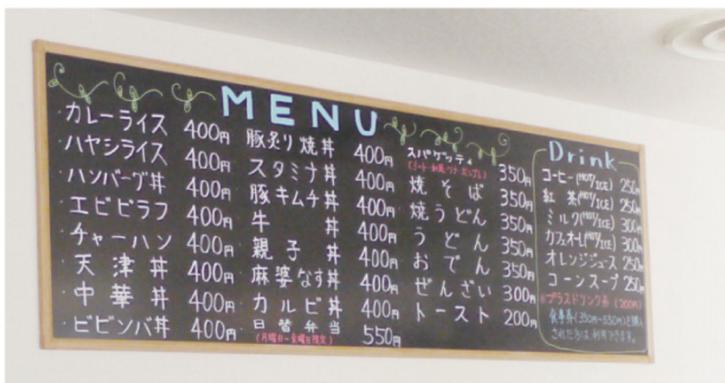 MENU
カレーライス 400円
ハヤシライス 400円
ハンバーグ丼 400円
エビピラフ 400円
チャーハン 400円
天津丼 400円
中華丼 400円
ビビンバ丼 400円
豚炙り焼丼 400円
スタミナ丼 400円
豚キムチ丼 400円
牛丼 400円
親子丼 400円
麻婆なす丼 400円
カルビ丼 400円
日替弁当 550円
(月曜日~金曜日限定)
スパゲッティ 350円
焼そば 350円
焼うどん 350円
うどん 350円
おでん 350円
ぜんざい 300円
トースト 200円
Drink
コーヒー(HOT/ICE) 250円
紅茶(HOT/ICE) 250円
ミルク(HOT/ICE) 300円
カフェオーレ(HOT/ICE) 300円
オレンジジュース 250円
コーンスープ 250円
※プラスドリンク券(200円)
食事券(350円~550円)を購入
された方は利用できます。